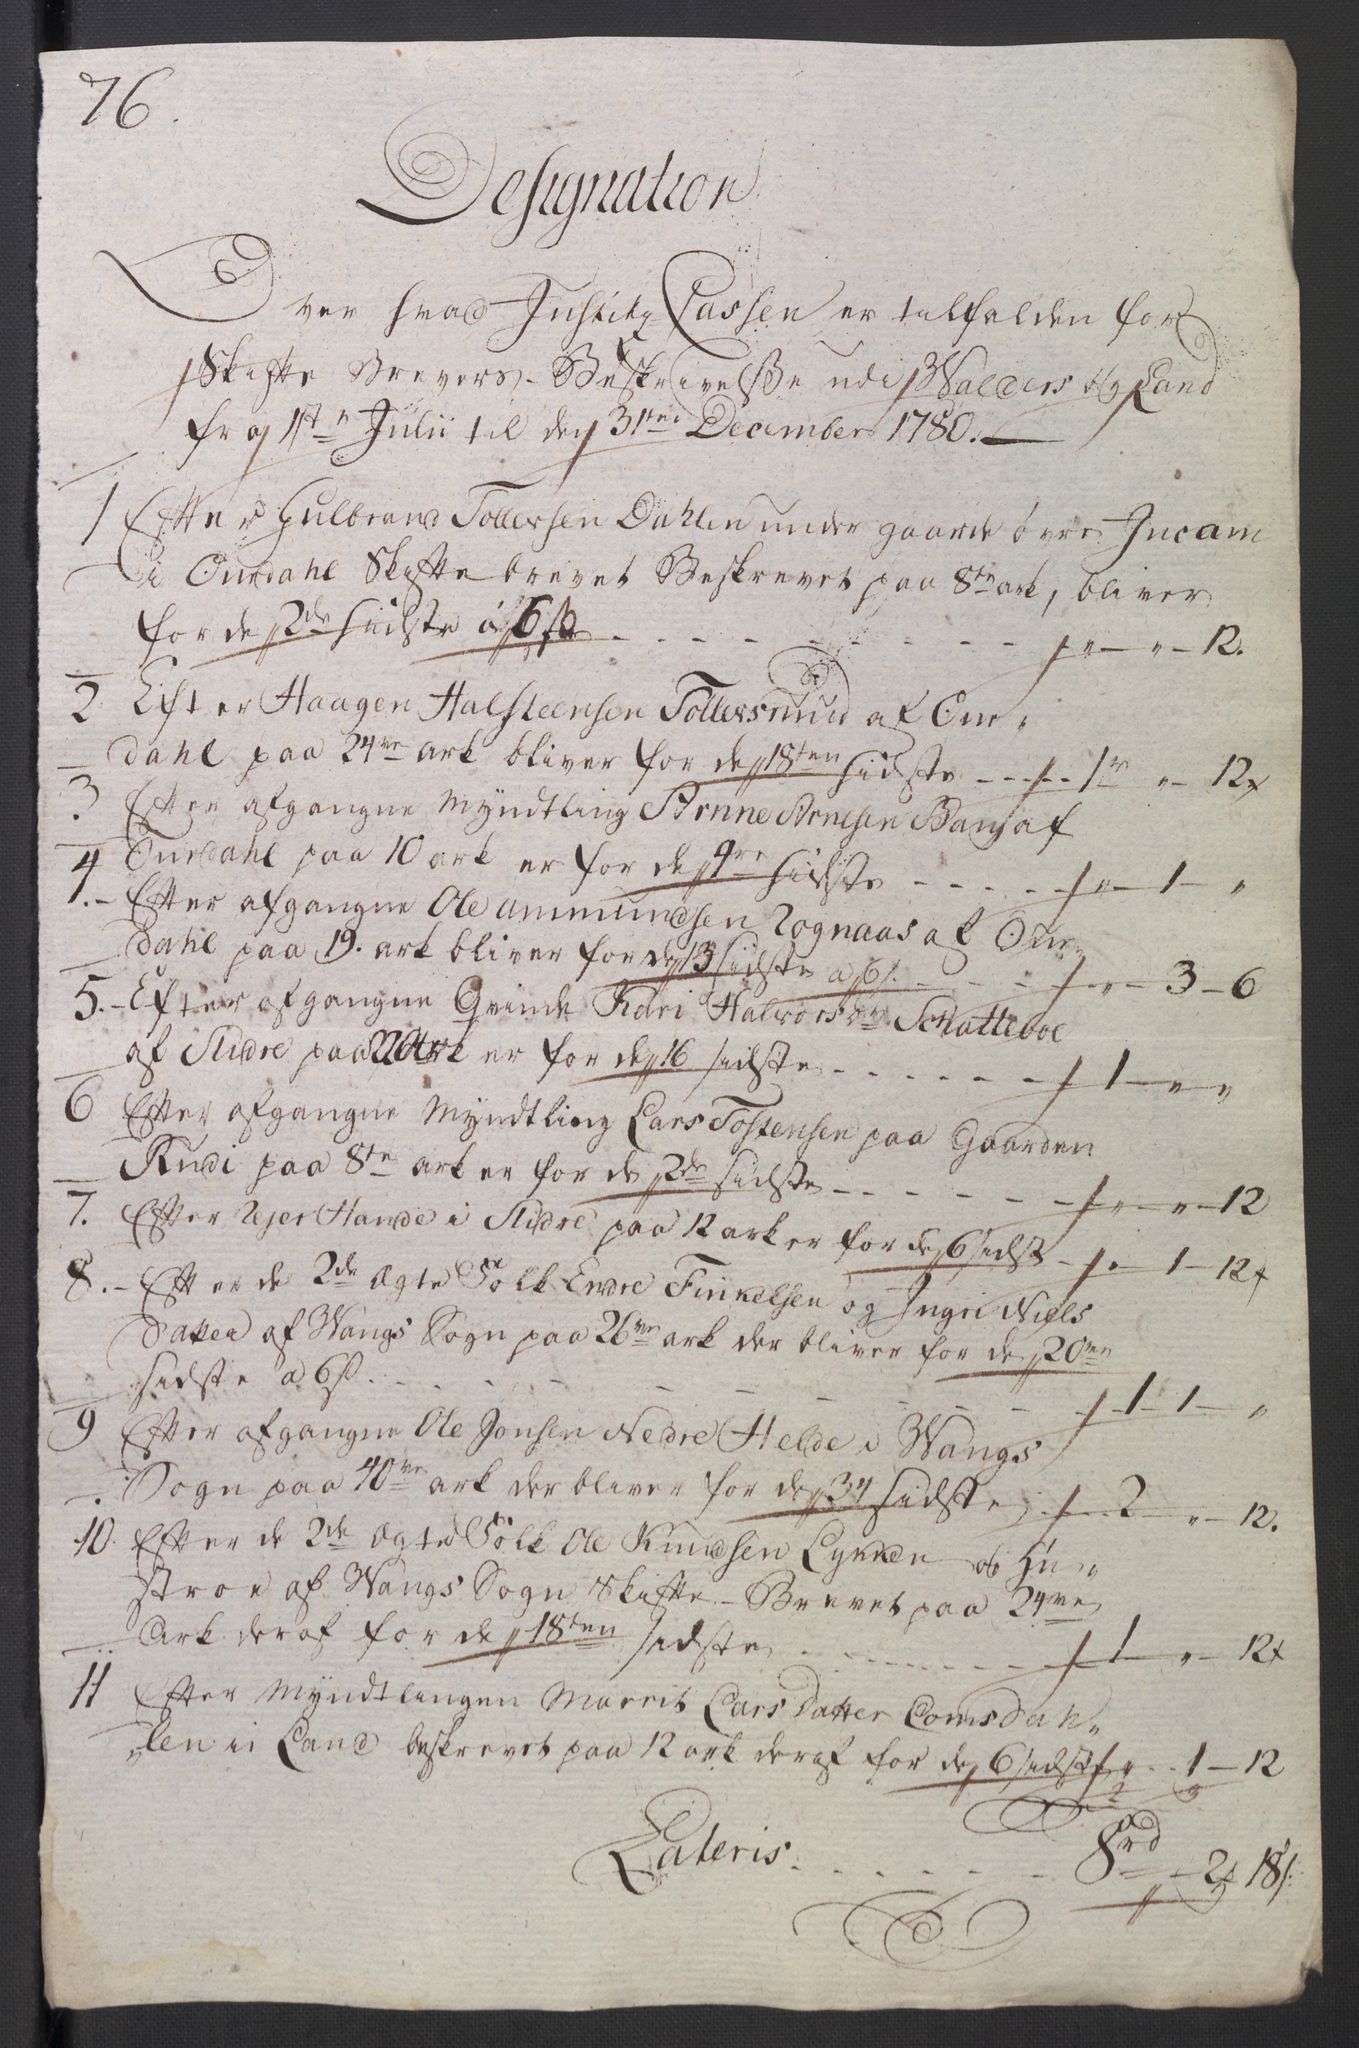 76.
Designation
Over hvad Justitz Cassen er tilfalden for
Skifte Brevers Beskrivelße udi Walders og Land
fra 1ste Julii til den 31te December 1780.
1 Efter Gulbrand Tollersen Dahlen under gaarde øvre Incam
i Ourdahl Skifte brevet Beskrevet paa 8te ark, bliver
for de 2de sidste a 6 ß - - - " - " - 12.
2 Efter Haagen Halsteensen Tollersruud af Our-
dahl paa 24re ark bliver for de 18ten sidste - - - 1 r " - 12
3. Efter afgangne Myndtling Arnne Arnesen Bang af
Ourdahl paa 10 ark er for de 4re sidste - - - " - 1 - "
4. - Efter afgangne Ole Ammundsen Rognaas af Our-
dahl paa 19. ark bliver for de 13 sidste a 6 ß. - - - " - 3 - 6
5. - Efter afgangne Qvinde Kari Halvorsdr. Schatteboe
af Slidre paa 22 Ark er for de 16 sidste - - - 1 - " - "
6 Efter afgangne Myndtling Lars Tostensen paa Gaarden
Rudi paa 8te ark er for de 2de sidste - - - " - " - 12
7. Efter Ejer Hande i Slidre paa 12 ark er for de 6 sidst - " 1 - 12
8. - Efter de 2de Ægte Folk Endre Finkelsen og Ingri Niels
Datter af Wangs Sogn paa 26re ark der bliver for de 20ve
sidste a 6 ß. - - - 1 - 1 - "
9 Efter afgangne Ole Jonsen Nedre Helde i Wangs
Sogn paa 40ve ark der bliver for de 34 sidste - - 2 - " - 12.
10. Efter de 2de Ægte Folk Ole Knudsen Lykken og Hu-
stroe af Wangs Sogn Skifte-Brevet paa 24re
Ark deraf for de 18ten sidste - - - 1 - " - 12
11 Efter Myndtlingen Marrit Lars Datter Comsdah-
len i Land beskrevet paa 12 ark deraf for de 6 sidste " - 1 - 12
Lateris - - - 8 rd - 2 18 ß.